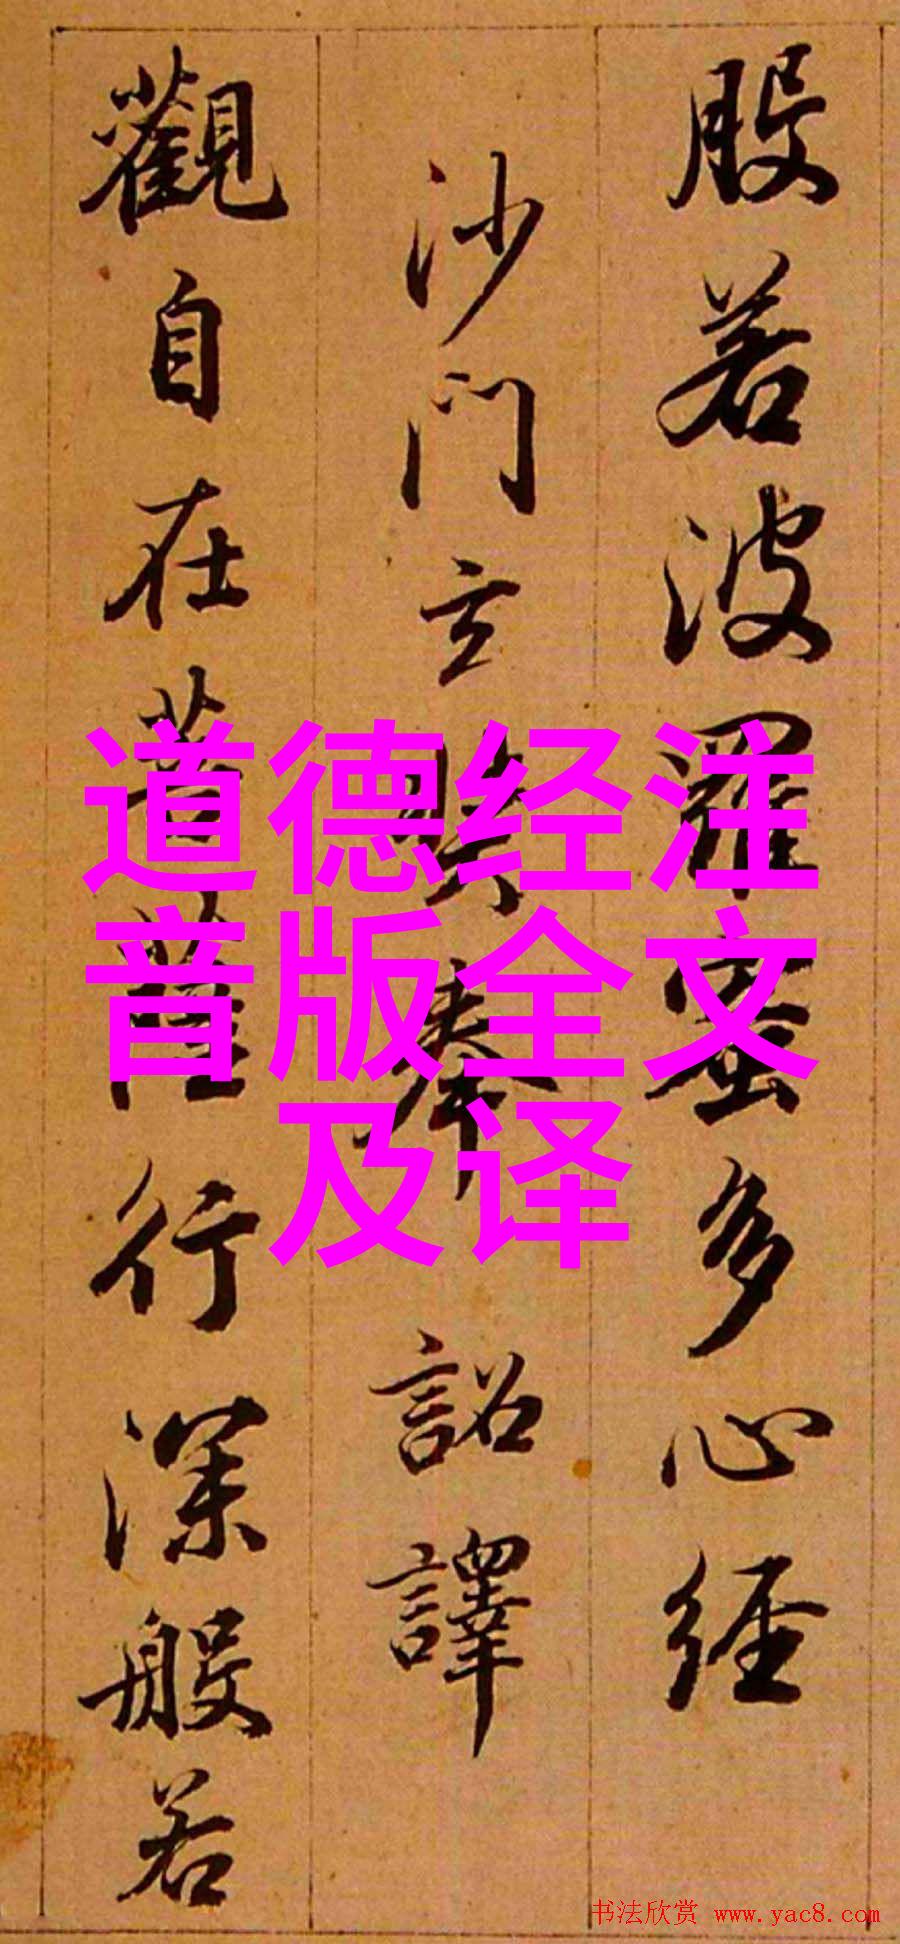 般若波羅蜜多心經
沙門玄奘奉 詔譯
觀自在菩薩行深般若
道德经注
音版全文
及译
书法欣赏 www.yac8.com